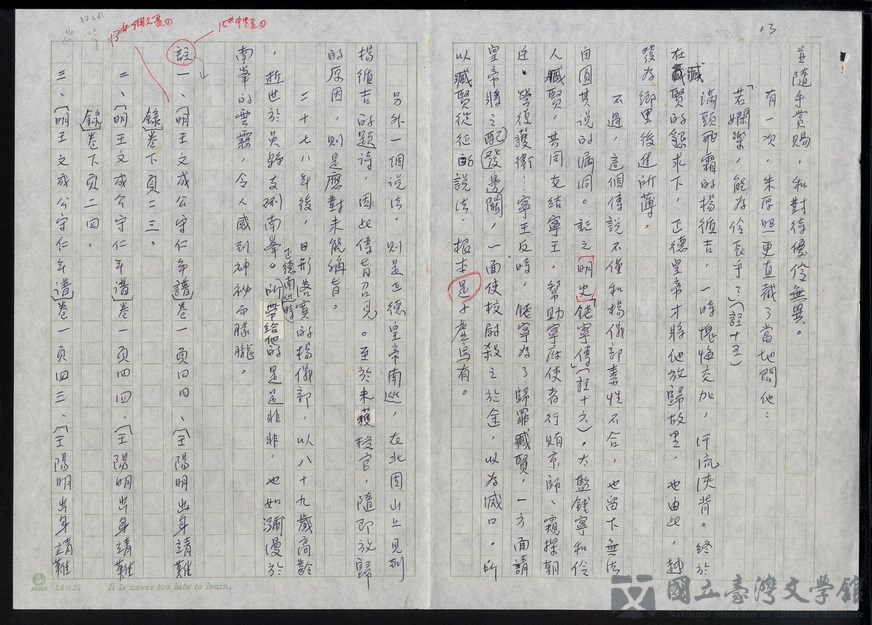 13
並隨手賞賜，和對待優伶無異。
有一次，朱厚照更直截了當地問他：
「若嫻樂，能為伶長乎？」（註十五）
滿頭飛霜的楊循吉，一時愧悔交加，汗流浹背。終於
在臧賢的懇求下，正德皇帝才將他放歸故里，也由此，越
發為鄉里後進所薄。
不過，這個傳說不僅和楊儀部素性不合，也留下無法
自圓其說的漏洞。証之「明史」「錢寧傳」（註十六），太監錢寧和伶
人臧賢，共同交結寧王，幫助寧府使者行賄京師、窺探朝
廷、營復護衛…寧王反時，錢寧為了歸罪臧賢，一方面請
皇帝將之配發邊關，一面使校尉殺之於途，以為滅口。所
以臧賢從征的說法，根本是子虛烏有。
另外一個說法，則是正德皇帝南巡，在北固山上見到
楊循吉的題詩，因此傳旨召見。至於未獲授官，隨即放歸
的原因，則是應對未能稱旨。
二十七八年後，日形落寞的楊儀部，以八十九歲高齡
，逝世於吳縣支硎南峯。正德南巡時所帶給他的是是非非，也如瀰漫於
南峯的雲霧，令人感到神秘而朦朧。
註
一、「明王文成公守仁年譜」卷一頁四四、「王陽明出身靖難
錄」卷下頁二三。
二、「明王文成公守仁年譜」卷一頁四四、「王陽明出身靖難
錄」卷下頁二四。
三、「明王文成公守仁年譜」卷一頁四三、「王陽明出身靖難
24×25
It is never too late to learn.
國立臺灣文學館
National Museum of Taiwan Literature